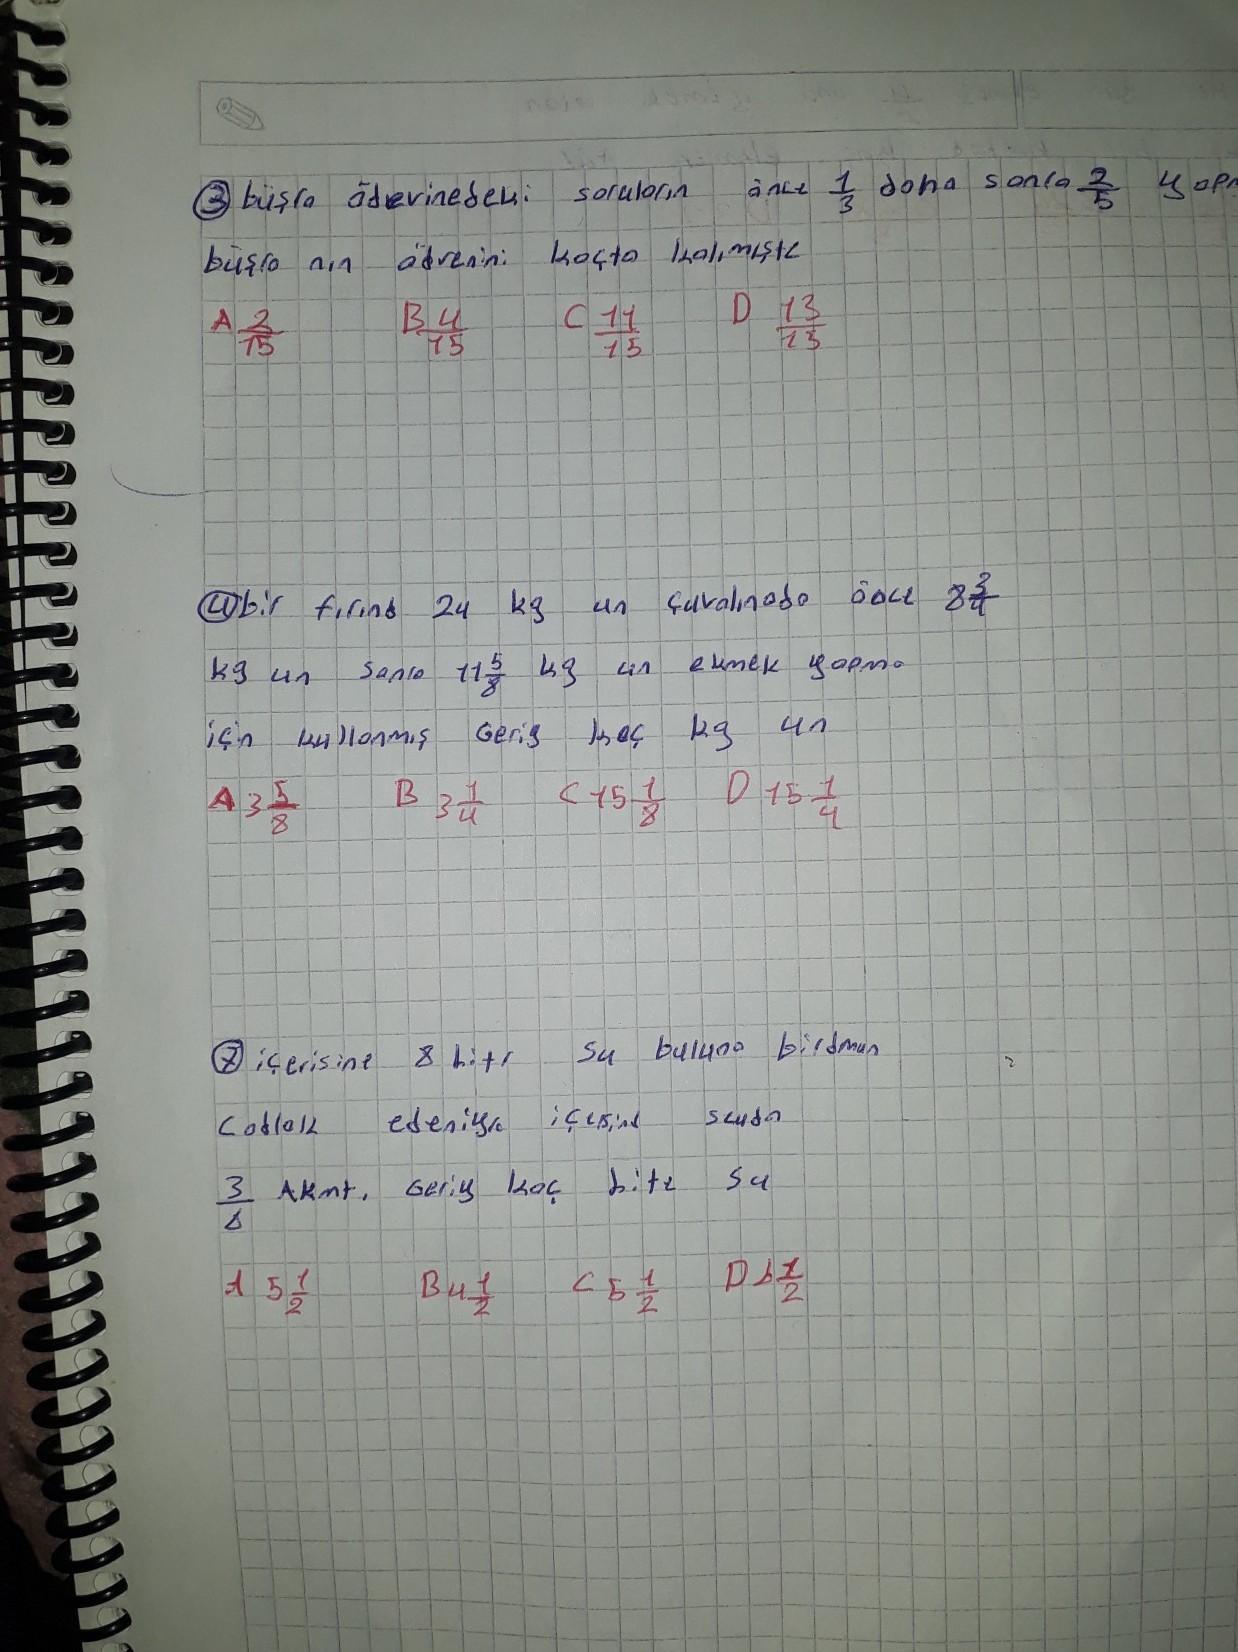 ③ büşra ödevinedeki soruların önce 1/3 daha sonra 2/5 yapm
büşra nın kaçta kalmıştı
A 2/15 B 4/15 C 11/15 D 13/15
④ bir fırınd 24 kg un çuvalınada önce 8
kg un sonra 11 5/8 kg un ekmek yapma
için kullanmış geriy kaç kg un
A 3 5/8 B 3 1/4 C 15 1/8 D 15 1/4
⑦ içerisine 8 litr su buluna
içesind
3 Akmt. geriy kaç lite su
A 5 1/2 B 4 1/2 C 5 1/2 D 1/2